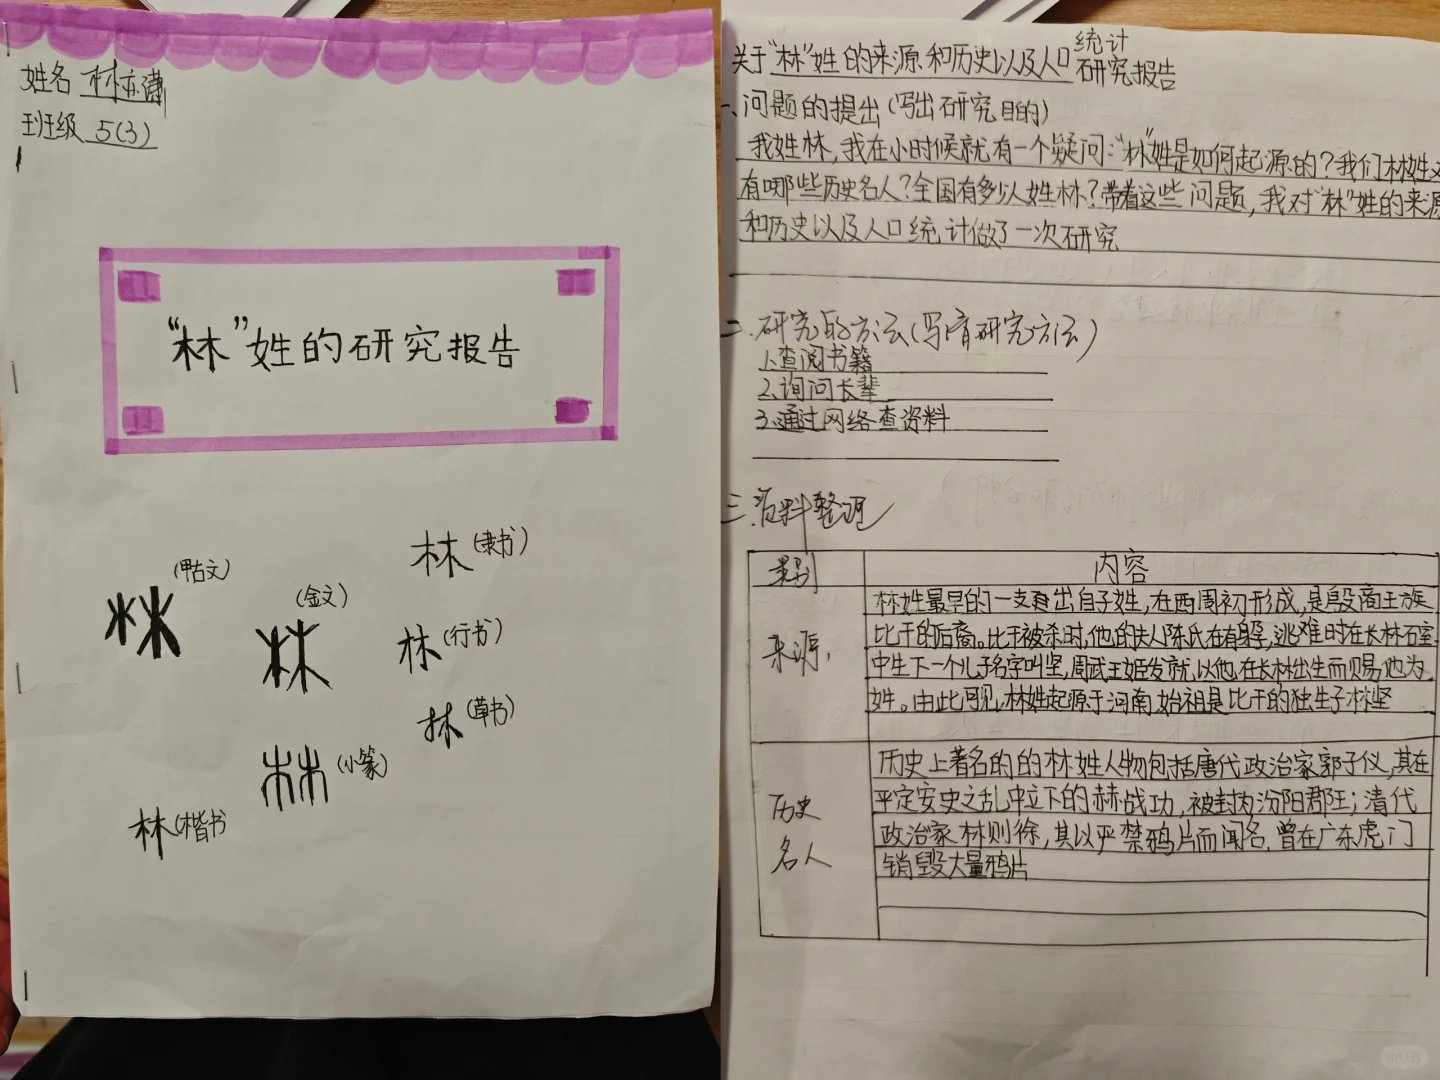 姓名 林亦谦
班级 5(3)
“林”姓的研究报告
(甲古文)
林
(金文)
林
林(隶书)
林(行书)
林(草书)
林(小篆)
林(楷书
关于“林”姓的来源和历史以及人口统计研究报告
一、问题的提出(写出研究目的)
我姓林,我在小时候就有一个疑问:“林”姓是如何起源的?我们林姓又
有哪些历史名人?全国有多少人姓林?带着这些问题,我对“林”姓的来源
和历史以及人口统计做了一次研究
二.研究的方法(写清研究方法)
1.查阅书籍
2.询问长辈
3.通过网络查资料
三.资料整理
类别
内容
来源
林姓最早的一支出自子姓,在西周初形成,是殷商王族
比干的后裔。比干被杀时,他的夫人陈氏在有身孕,逃难时在长林石室
中生下一个儿子名字叫坚,周武王姬发就以他在长林出生而赐他为
姓。由此可见,林姓起源于河南,始祖是比干的独生子林坚
历史
名人
历史上著名的的林姓人物包括唐代政治家郭子仪,其在
平定安史之乱中立下的赫战功,被封为汾阳郡王;清代
政治家林则徐,其以严禁鸦片而闻名,曾在广东虎门
销毁大量鸦片